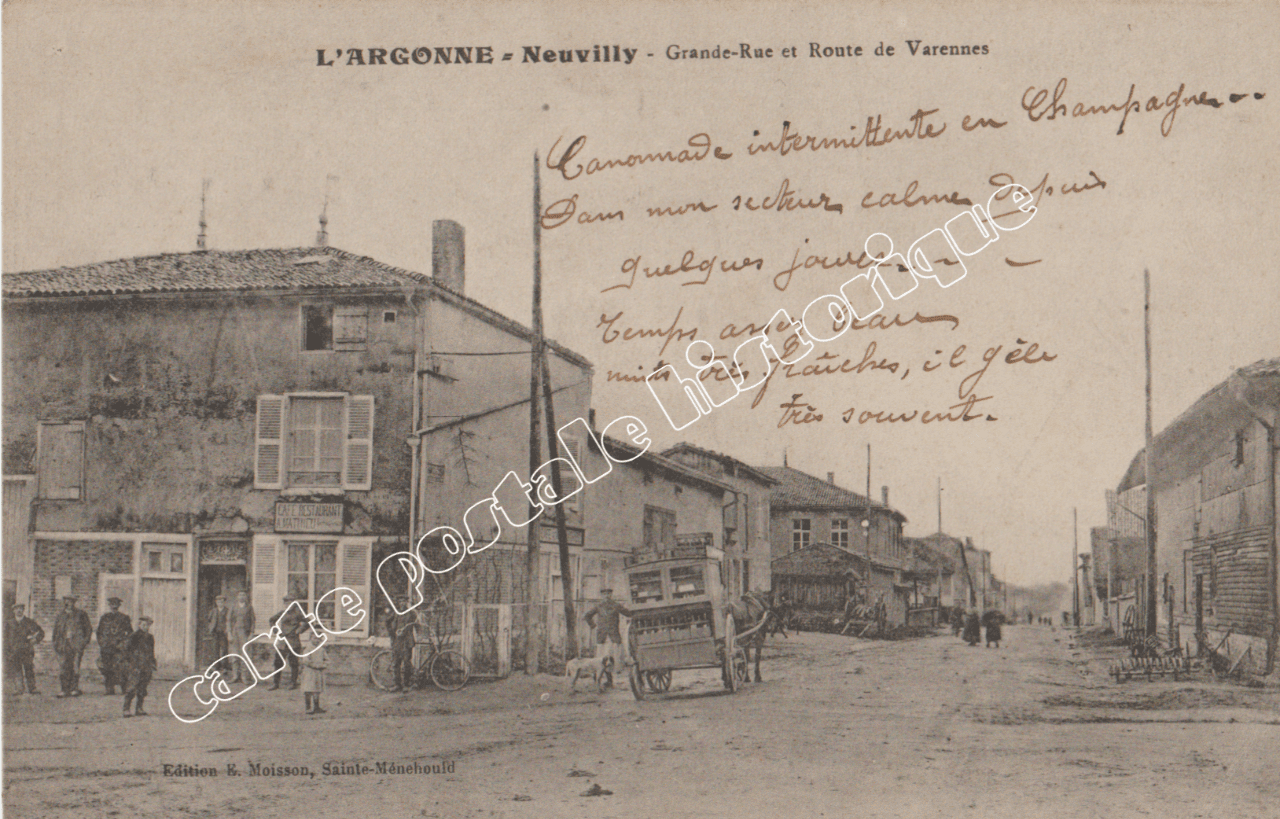 L'ARGONNE - Neuvilly - Grande-Rue et Route de Varennes
Canonnade intermittente en Champagne...
Dans mon secteur calme depuis
quelques jours. - - -
Temps assez beau
nuits très fraîches, il gèle
très souvent.
CAFÉ RESTAURANT
carte postale historique
Edition E. Moisson, Sainte-Ménehould